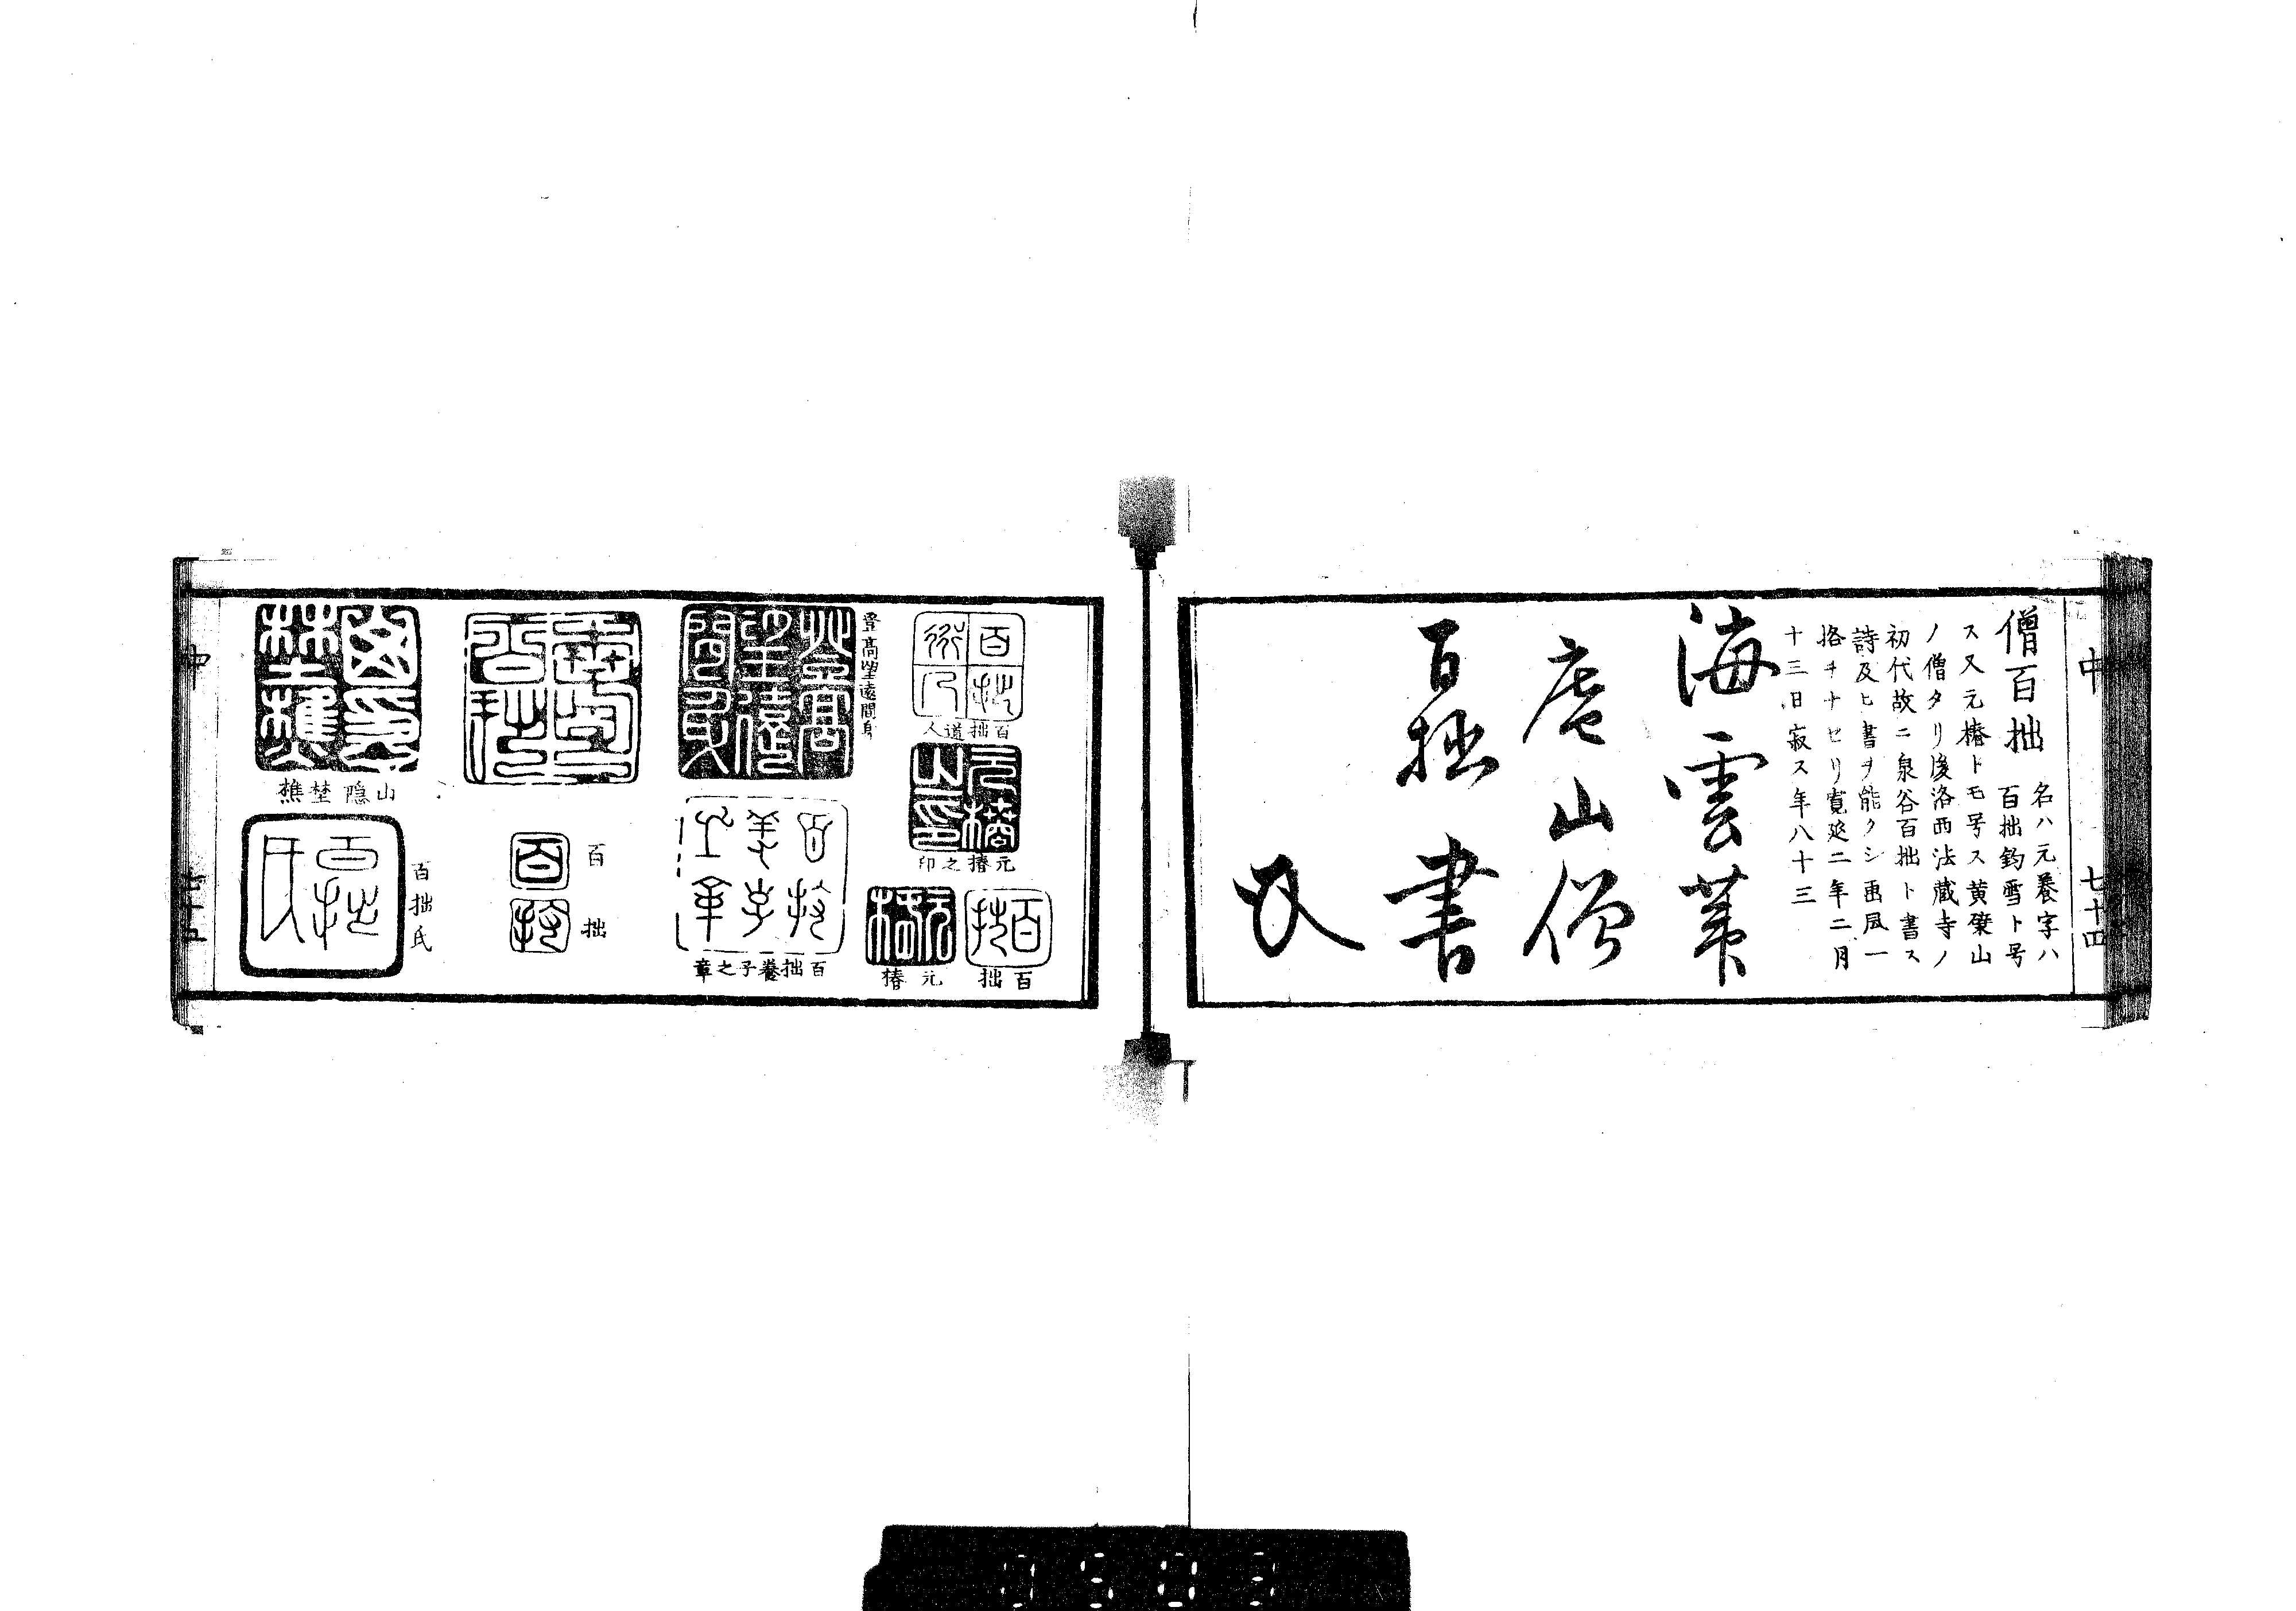 中
七十四
僧百拙 名ハ元養字ハ
百拙釣雪ト号
ス又元椿トモ号ス黄檗山
ノ僧タリ後洛西法蔵寺ノ
初代故ニ泉谷百拙ト書ス
詩及ヒ書ヲ能クシ画風一
格ヲナセリ寛延二年二月
十三日寂ス年八十三
海雲葦
庵山僧
百拙書
百拙道人
元椿之印
百拙
元椿
登高望遠間身
百拙養子之章
百拙
山隐埜樵
百拙氏
中
七十五